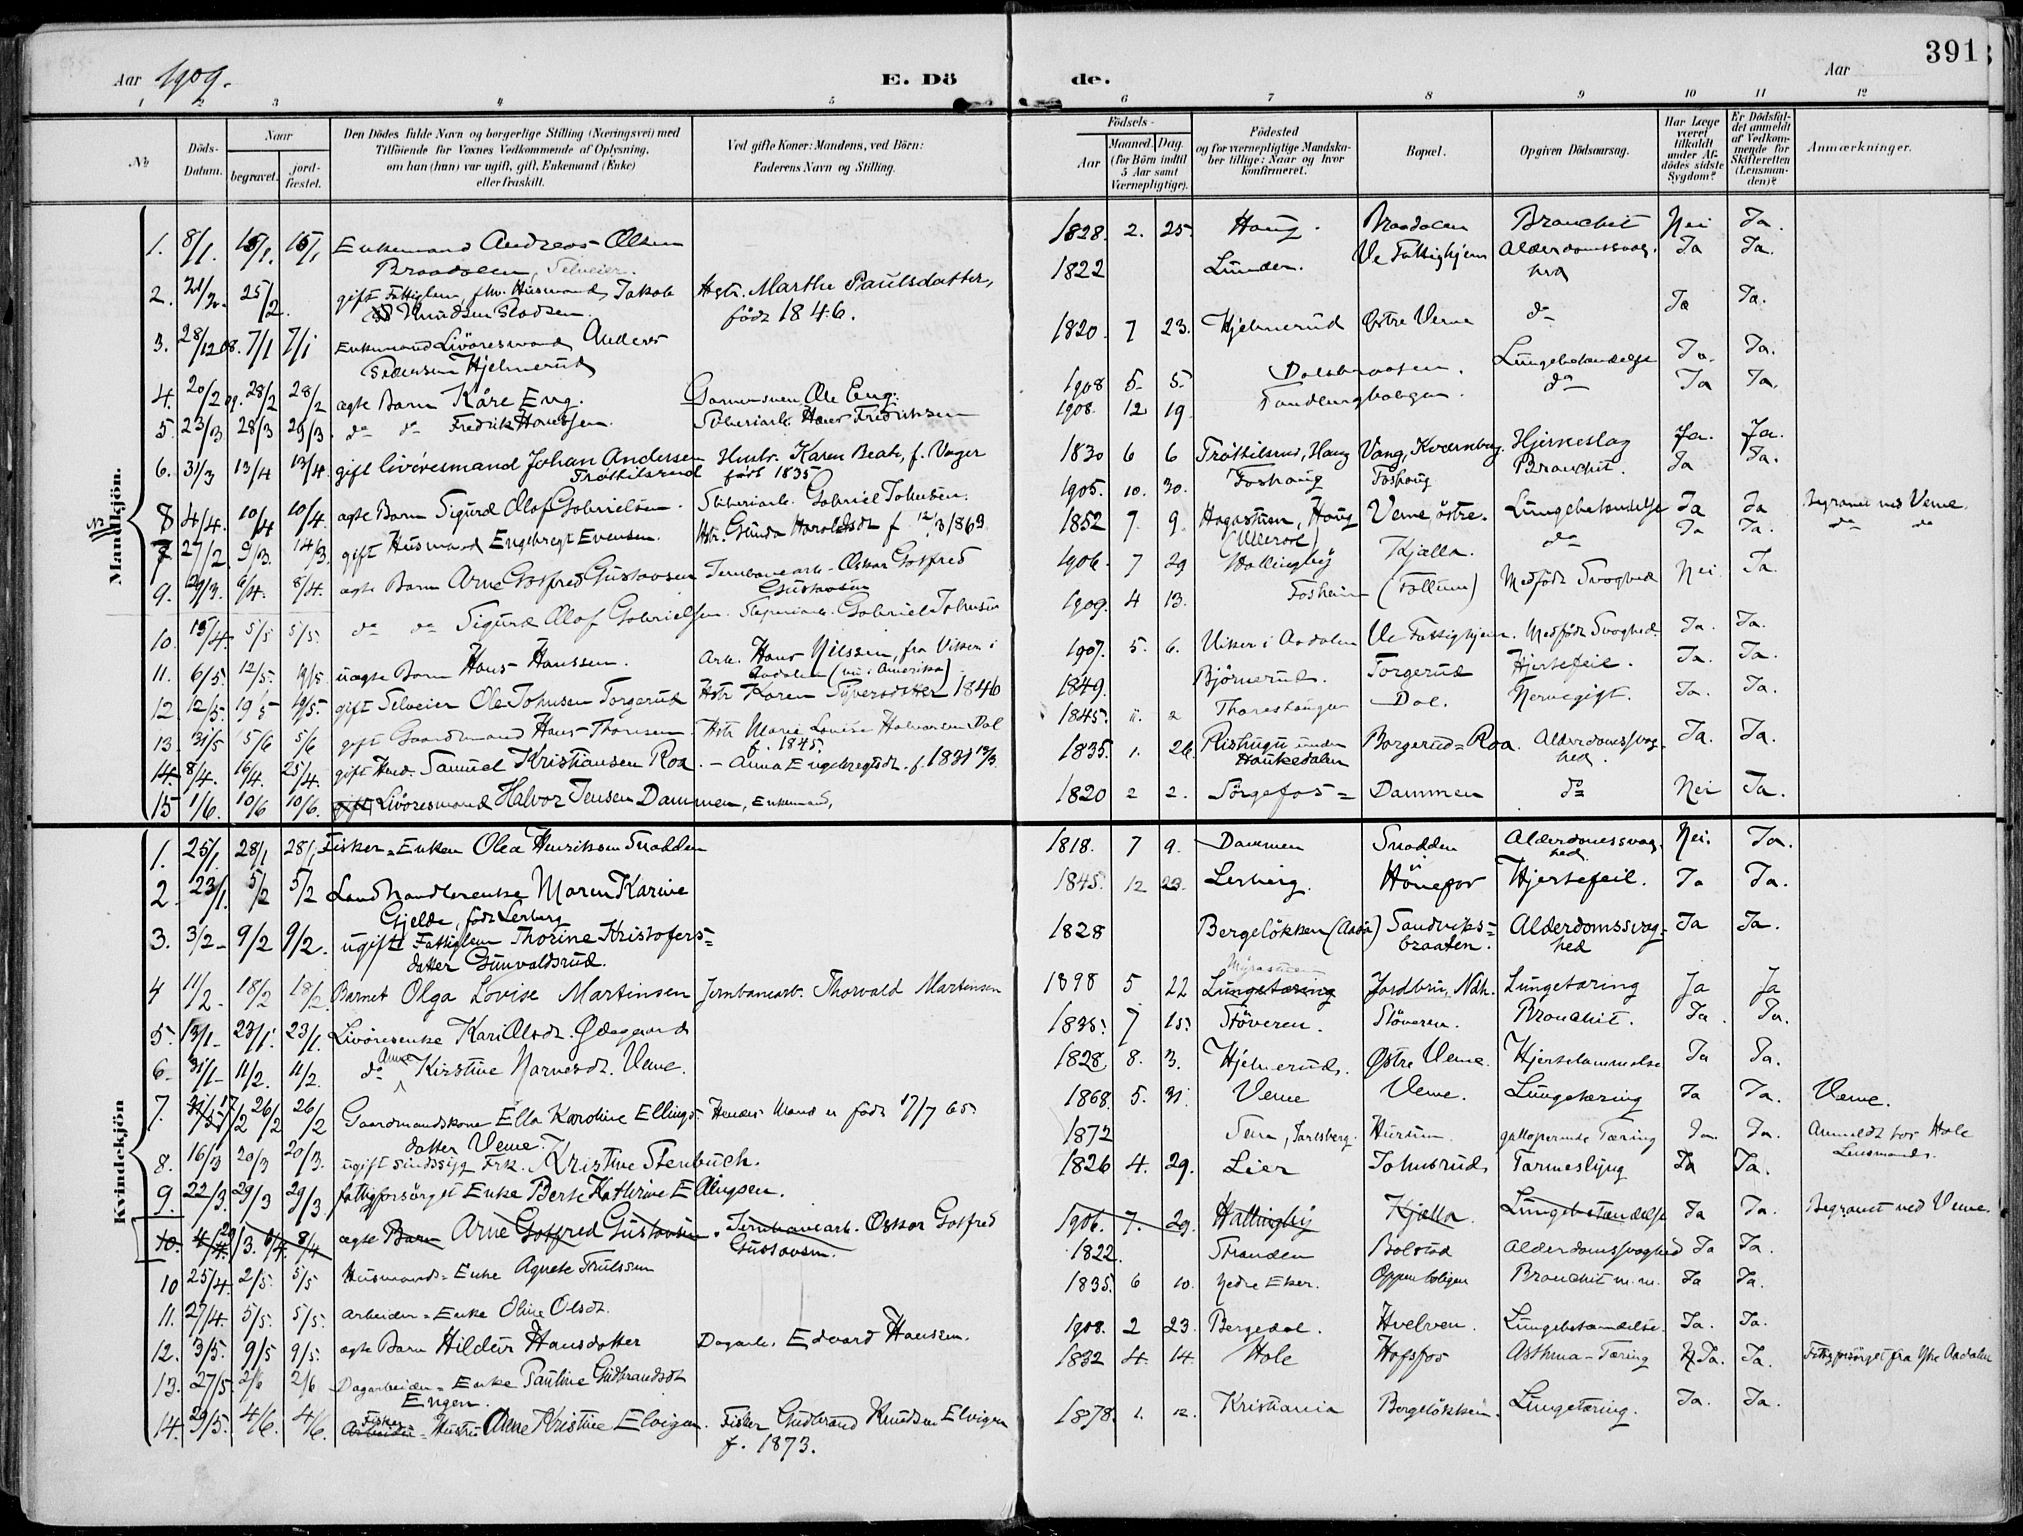 Aar 1909.
E. Döde.
Aar
391
1 2 3 4 5 6 7 8 9 10 11 12
№
Döds-Datum.
Naar
begravet.
jordfæstet.
Den Dödes fulde Navn og borgerlige Stilling (Næringsvei) med
Tilföiende for Voxnes Vedkommende af Oplysning,
om han (hun) var ugift, gift, Enkemand (Enke)
eller fraskilt.
Ved gifte Koner: Mandens, ved Börn:
Faderens Navn og Stilling.
Födsels-
Aar
Maaned. Dag.
(for Börn indtil
5 Aar samt
Værnepligtige).
Födested
og for værnepligtige Mandskaber tillige: Naar og hvor
konfirmeret.
Bopæl.
Opgiven Dödsaarsag.
Har Læge
været
tilkaldt
under Afdödes sidste
Sygdom?
Er Dödsfaldet anmeldt
af Vedkommende for
Skifteretten
(Lensmanden)?
Anmærkninger.
Mandkjön.
1. 8/1. 15/1. 15/1 Enkemand Andreas Olsen 1828. 2. 25. Haug. Braadalen Bronchit Nei Ja.
Braadalen, Selveier.
2. 21/2. 25/2. gift Fattiglem, fhv. Husmand, Jakob Hstr. Marthe Paulsdatter, 1822 Lunder. Ve Fattighjem Alderdomssvaghed Ja Ja.
Knudsen født 1846.
3. 28/12 08. 7/1 7/1 Enkemand Livöresmand Anders 1820 7 23. Hjelmerud Østre Veme do Ja Ja.
Pedersen Hjelmerud
4. 20/2 09. 28/2 28/2 ægte Barn Kåre Eng. Garmersvend Ole Eng. 1908 5 5 Dalsbraaten. Lungebetændelse Ja. Ja.
5. 23/3 28/3 29/3. do do Fredrik Hanssen. Sliberiarb. Hans Fredriksen 1908. 12 19. do Ja Ja.
6. 31/3 13/4 13/4. gift livöresmand Johan Andersen Hustr. Karen Beate, f. Vager 1830 6 6 Trøthilsrud, Haug Vang, Kværnberg. Hjerneslag Ja. Ja.
Trøthilsrud født 1835
8 4/4. 10/4 10/4. ægte Barn Sigurd Olaf Gabrielsen. Sliberiarb. Gabriel Johnsen. 1905. 10. 30. Foshaug Foshaug Bronchit. Ja Ja.
7 27/2. 9/3. 14/3. gift Husmand Engebregt Evensen. Hstr. Gunda Haraldsdt f. 12/3 1869. 1852 7. 9. Hagastuen, Haug Veme østre. Lungebetændelse Ja Ja Begravet ved Veme.
(Ullerål)
9. 29/3. 6/4. 8/4. ægte Barn Arne Gotfred Gustavsen Jernbanearb. Oskar Gotfred 1906. 7 29 Hallingby Kjælla. do Ja Ja. do do
Gustavsen
10. 15/4. 5/5 5/5. do do Sigurd Olaf Gabrielsen. Sliperiarb. Gabriel Johnsen 1909. 4 13. Fosheim (Follum) Medfödt Svaghed Nei Ja.
11. 6/5. 12/5. uægte Barn Hans Hanssen. Arb. Hans Nilssen, fra Viker i 1907. 5. 6. Viker i Aadalen Ve Fattighjem. Medfødt Svaghed. Ja. Ja.
Aadalen (nu i Amerika)
12. 12/5. 19/5 19/5. gift Selveier Ole Johnsen Torgerud Hstr Karen Syversdtter 1846 1849. Björnerud. Torgerud Hjertefeil. Ja. Ja.
13. 31/5 5/6 5/6 gift Gaardmand Hans Thoresen Hstr Marie Lovise Halvorsen Dal 1845. 11. 2 Thoreshaugen Dal. Nervegigt. Ja. Ja.
f. 1845.
14. 8/4. 16/4. 25/4. gift Hmd. Samuel Kristiansen Roa. - Anna Engebregtsdt. f. 1831 1835. 1. 26. Rishugu under Borgerud=Roa. Alderdomssvaghed. Ja. Ja.
Haukedalen
15 1/6. 10/6 10/6. gift Livöresmand Halvor Jensen Dammen, Enkemand, 1820 2 2. Sörgefos= Dammen do Nei Ja.
Kvindekjön
1. 25/1. 28/1 28/1 Fisker=Enken Olea Henriksen Snadden 1818. 7 9. Dammen Snadden Alderdomssvaghed. Nei. Ja.
2. 23/1. 5/2 5/2 Landhandlerenke Maren Karine 1845. 12 23. Lerberg. Hönefos Hjertefeil. Ja Ja.
Gjelde, født Lerberg
3. 3/2 9/2 9/2. ugift Fattiglem Thorine Kristofers= 1828 Bergeløkken (Aada) Sandviks= Alderdomssvag= Ja Ja.
datter Gunvaldsrud. braaten. hed
4 11/2 18/2 18/2. Barnet Olga Lovise Martinsen Jernbanearb. Thorvald Martinsen 1898 5 22 Lungetæring Jordbru, Ndh. Lungetæring Ja Ja
5. 13/1 23/1. 23/1. Livöresenke Kari Olsdt. Ødegaard 1835. 7 15. Støveren. Støveren. Bronchit. Ja. Ja.
6 31/1 11/2. 11/2. do Anne Kirstine Narvesdt. Veme. 1828 8. 3. Hjelmerud. Østre Veme. Hjertelammelse Ja Ja.
7. 17/2 26/2 26/2 Gaardmandskone Ella Karoline Ellings- Hendes Mand er født 17/7 65. 1868. 5. 31 Veme Veme. Lungetæring Ja Ja. Veme.
datter Veme.
8. 16/3 20/3 20/3. ugift sindssyg Frk. Kristine Stenbuch. 1872 Sem, Jarlsberg. Hurum. galloperende Tæring Ja. Ja. Anmeldt hos Hole
Lensmand.
9. 22/3. 29/3 29/3 fattigforsørget Enke Berte Kathrine Ellingsen. 1826 4. 29. Lier Johnsrud Tarmeslyng Ja Ja.
10. 29/3. 6/4. 8/4 ægte Barn Arne Gotfred Gustavsen. Jernbanearb. Oskar Gotfred 1906. 7. 29. Hallingby Kjælla. Lungebetændelse Ja Ja. Begravet ved Veme.
Gustavsen.
10 25/4. 2/5. 5/5 Husmands=Enke Agnete Trulssen 1822. Stranden Bolstad Alderdomssvaghed Ja Ja.
11. 27/4. 5/5. 5/5. Arbeider=Enke Oline Olsdt. 1835. 6 10. Nedre Eker. Oppenboligen Bronchit m.m. Ja Ja.
12. 3/5. 9/5 9/5. ægte Barn Hildur Hansdatter Dagarb. Edvard Hansen. 1908. 2 23. Bergedal. Hvelven. Lungebetændelse. Ja. Ja.
13. 27/5. 2/6 2/6 Dagarbeider=Enke Pauline Gudbrandsdt 1832 4. 14. Hole Hofsfos Asthma-Tæring Ja. Ja. Fattigforsörget fra Ytre Aadalen
Engen.
14. 29/5. 4/6. 4/6. Arbeider Fisker=Hustru Anne Kristine Elvigen. Fisker Gudbrand Knudsen Elvigen 1878. 1. 12. Kristiania Bergeløkken. Lungetæring. Ja. Ja.
f. 1873.